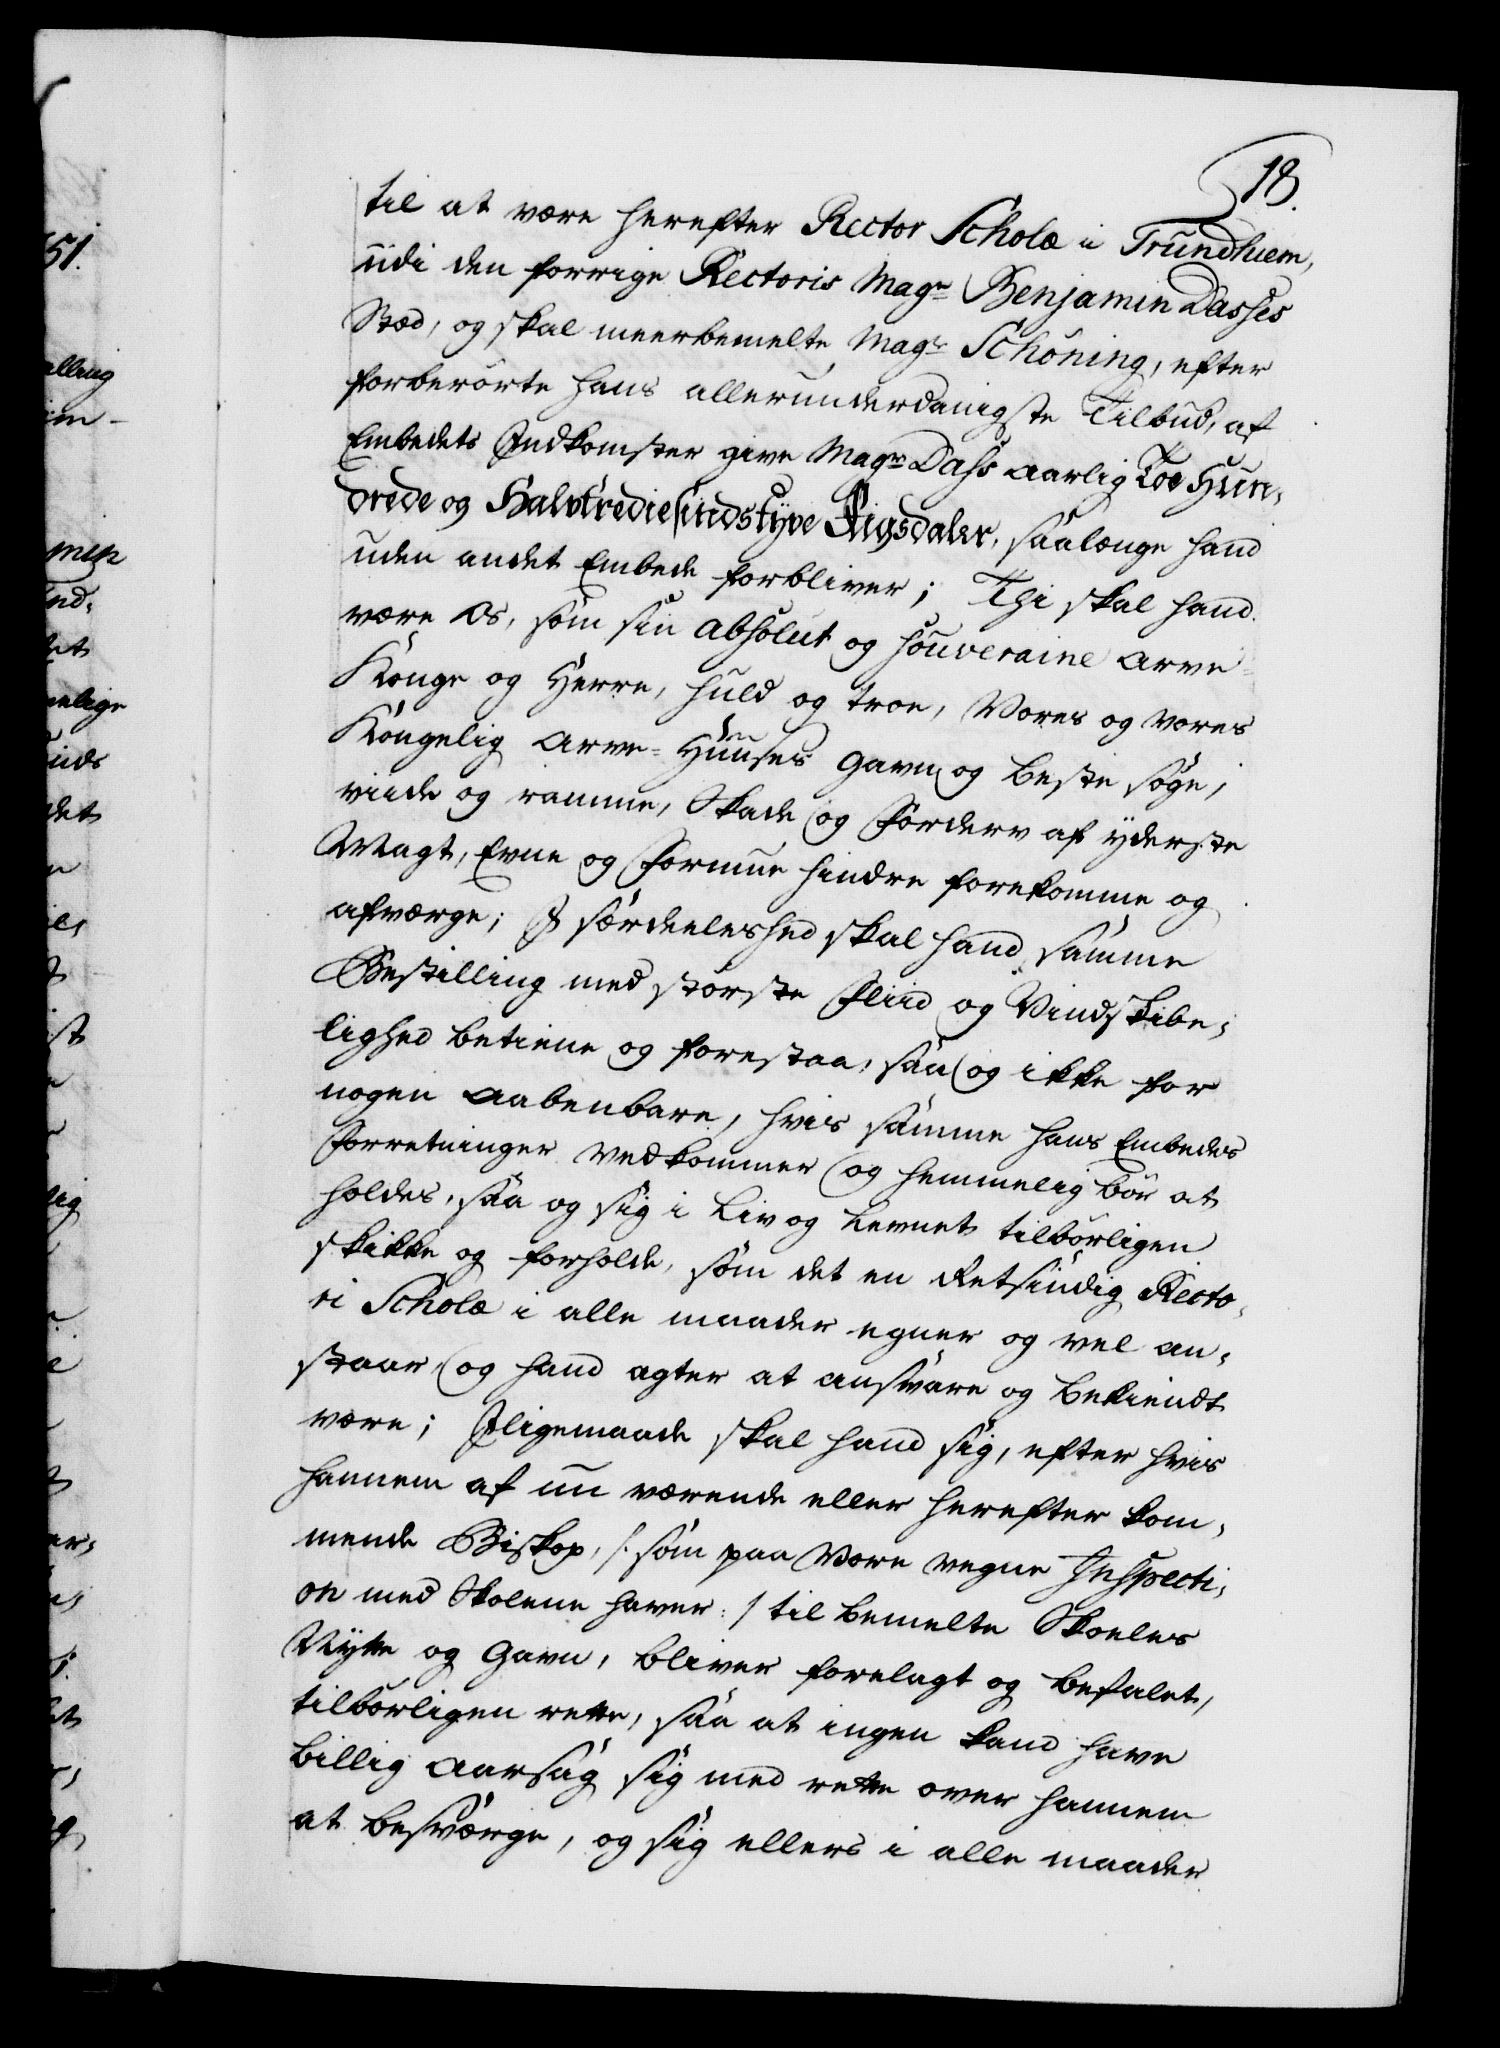 18.
til at være herefter Rector Scholæ i Trundhiem,
udi den forrige Rectoris Magr Benjamin Dasses
Stæd, og skal meerbemelte Magr Schöning, efter
forberörte hans allerunderdanigste Tilbud, af
Embedets Indkomster give Magr Dass aarlig Toe Hun,
drede og Halvtrediesindstyve Rigsdaler, saalænge hand
uden andet Embede forbliver; Thi skal hand
være Os, som sin absolut og souveraine Arve-
Konge og Herre, huld og troe, Vores og vores
Kongelig Arve-Huuses Gavn og beste søge,
viide og ramme, Skade og Forderv af yderste
Magt, Evne og Formue hindre forekomme og
afværge; I særdeeleshed skal hand samme
Bestilling med störste Fliid og Vindskibe,
lighed betiene og forestaa, saa og ikke for
nogen aabenbare, hvis samme hans Embedes
Forretninger vedkommer og hemmelig bör at
holdes, saa og sig i Liv og Levnet tilbörligen
skikke og forholde, som det en Retsindig Recto,
ri Scholæ i alle maader egner og vel an,
staar, og hand agter at ansvare og bekiendt
være; Iligemaade skal hand sig, efter hvis
hannem af nu værende eller herefter kom,
mende Biskop, /: som paa Vore vegne Inspecti,
on med Skolene haver :/ til bemelte Skoeles
Nytte og Gavn, bliver forelagt og befalet,
tilbörligen rette, saa at ingen kand have
billig aarsag sig med rette over hannem
at besværge, og sig ellers i alle maader
51.
alling